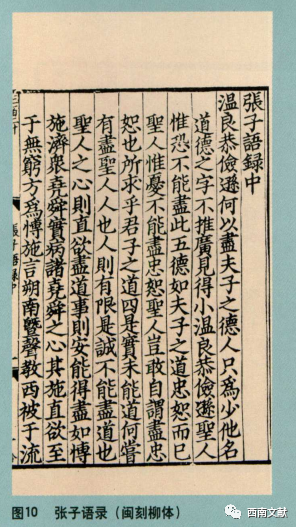 張子語録中
温良恭儉遜何以盡夫子之德人只爲少他名
道德之字不推廣見得小温良恭儉遜聖人
惟恐不能盡此五德如夫子之道忠恕而已
聖人惟憂不能盡忠恕聖人豈敢自謂盡忠
恕也所求乎君子之道四是實未能道何嘗
有盡聖人人也人則有限是誠不能盡道也
聖人之心則直欲盡道事則安能得盡如博
施濟衆堯舜實病諸堯舜之心其施直欲至
于無窮方爲博施言朔南暨聲教西被于流
張子語録中
图10 张子语录（闽刻柳体）
西南文献